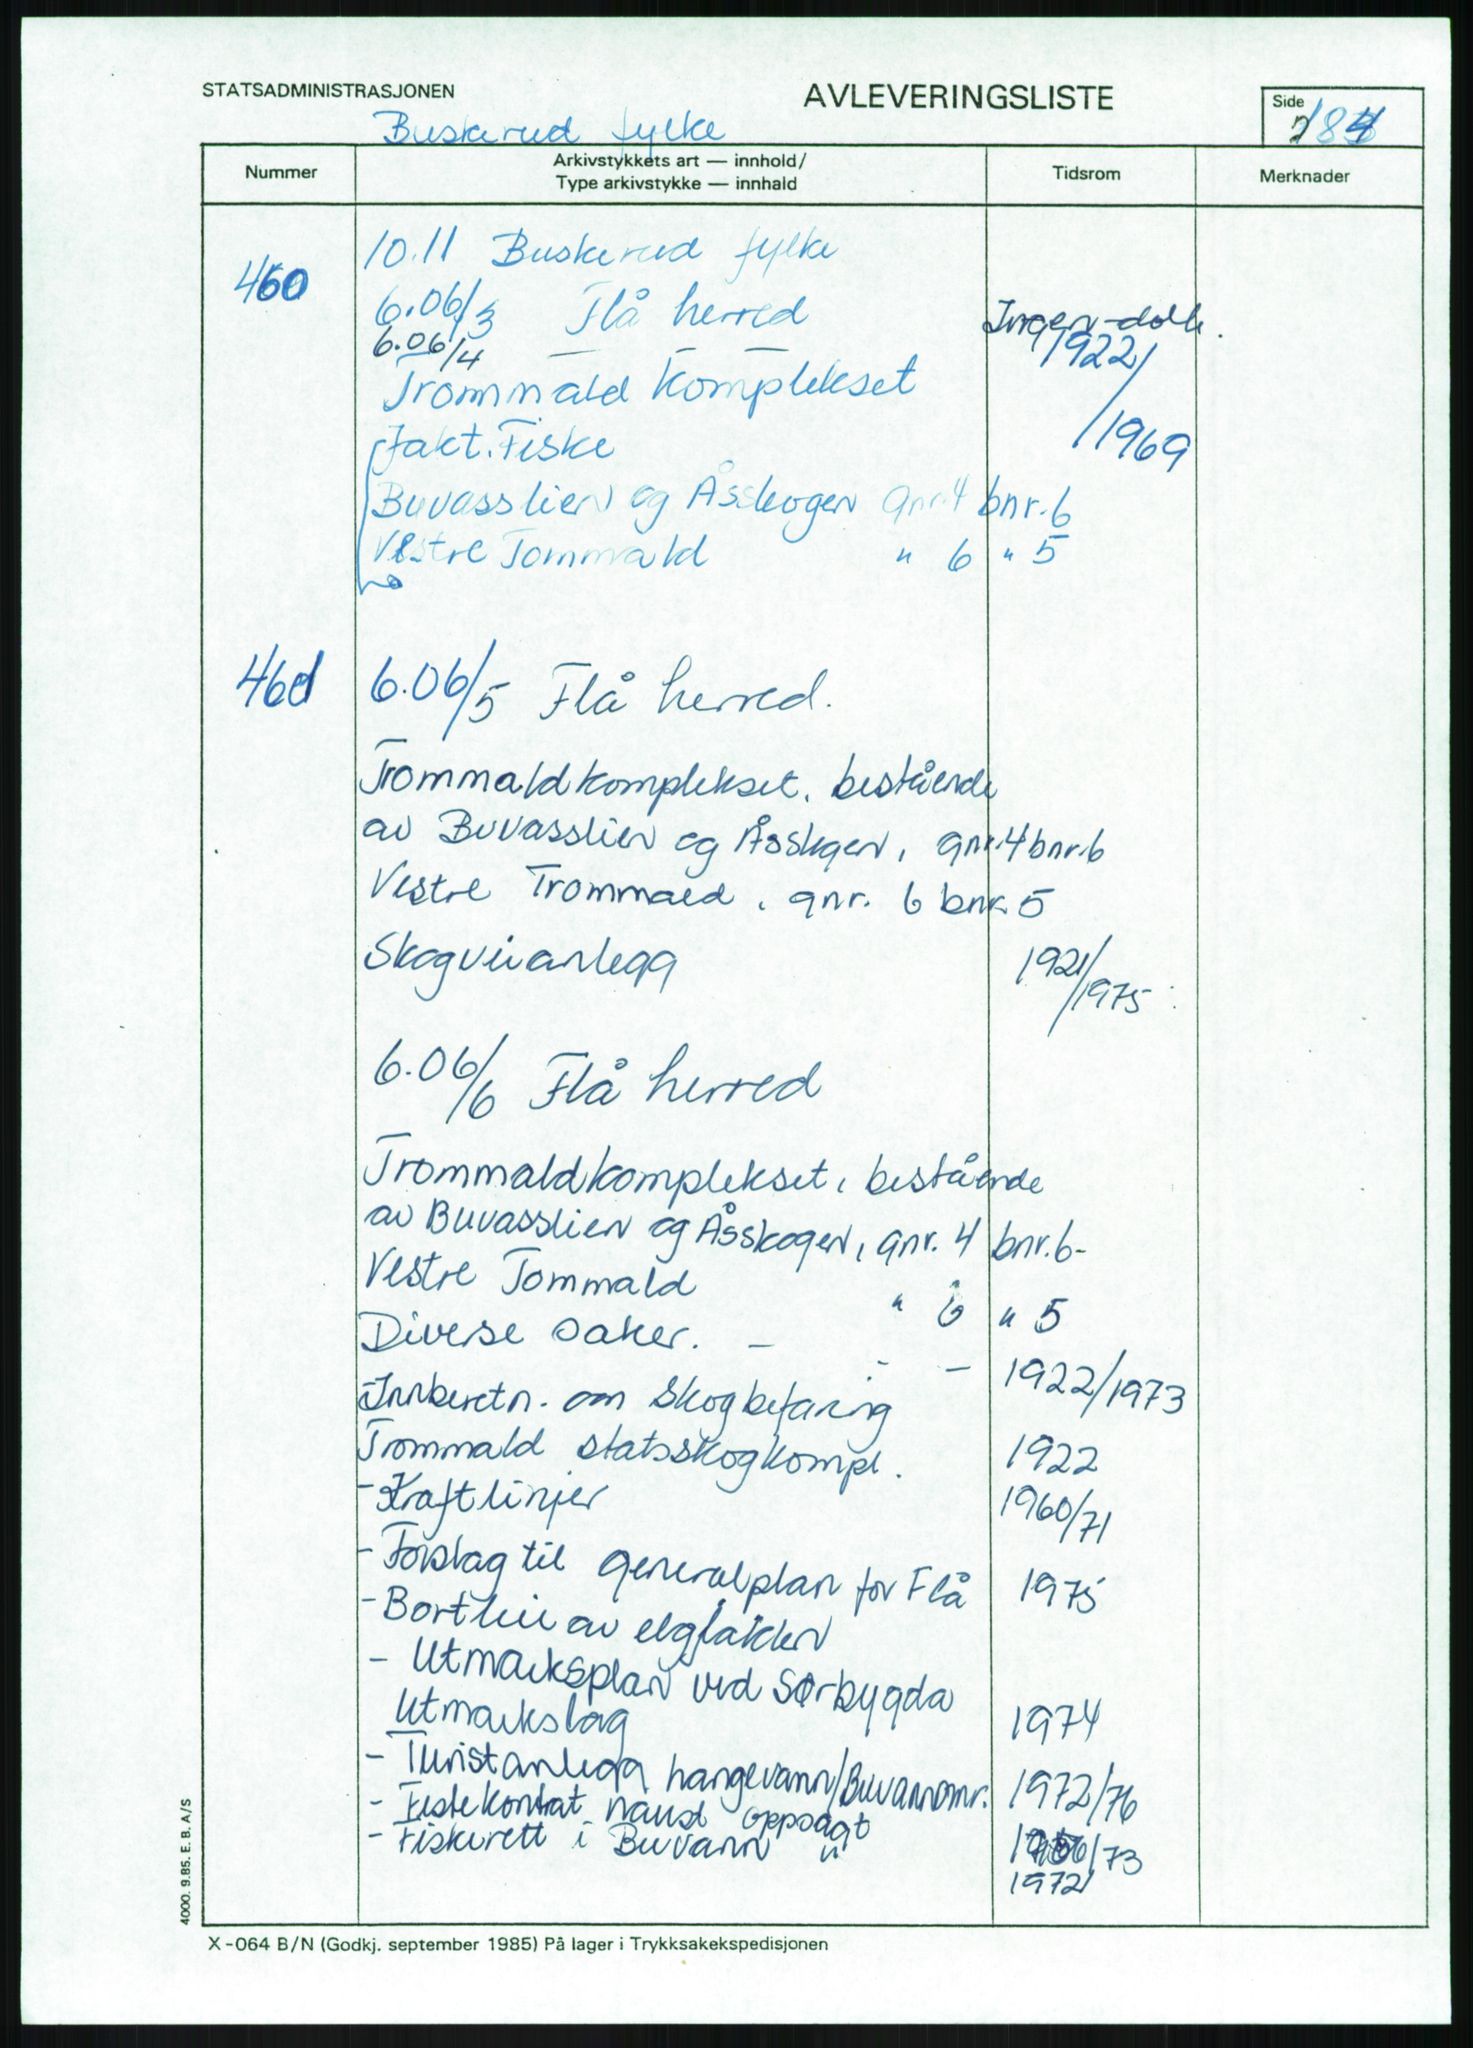 STATSADMINISTRASJONEN
AVLEVERINGSLISTE
Side
Buskerud fylke
Nummer
Arkivstykkets art — innhold/
Type arkivstykke — innhald
Tidsrom
Merknader
10.11 Buskerud fylke
460
6.06/3 Flå herred
Ingen dok.
6.06/4 — —
1922/
Trommald Komplekset
/1969
Jakt. Fiske
Buvasslien og Åsskogen gnr. 4 bnr. 6
Vestre Tommald " 6 " 5
6.06/5 Flå herred.
Trommaldkomplekset. bestående
av Buvasslien og Åsskgen, gnr. 4 bnr. 6
Vestre Trommald, gnr. 6 bnr. 5
Skogveianlegg 1921/1975
6.06/6 Flå herred
Trommaldkomplekset, bestående
av Buvasslien og Åsskogen, gnr. 4 bnr. 6-
Vestre Tommald " 6 " 5
Diverse saker. — - — 1922/1973
-Innberetn. om Skogbefaring
Trommald statsskogkompl. 1922
-Kraftlinjer 1960/71
- Forslag til generalplan for Flå 1975
- Bortleie av elgjakten
- Utmarksplan ved Sørbygda
Utmarkslag 1974
- Turistanlegg hangevann/Buvannomr. 1972/76
- Festekontrat naust oppsagt /73
- Fiskerett i Buvann " 1972
4000. 9.85. E. B. A/S
X-064 B/N (Godkj. september 1985) På lager i Trykksakekspedisjonen